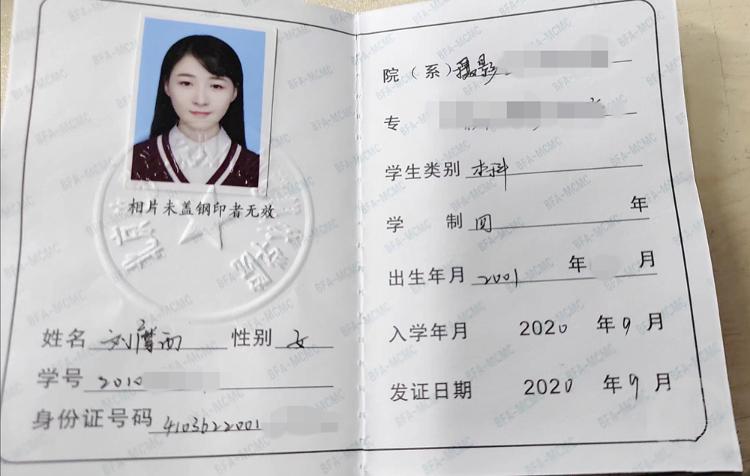 相片未盖钢印者无效
北京
姓名 刘摩西 性别 女
学号 2010
身份证号码 4103622001
院（系）摄影
专
学生类别 本科
学 制 四 年
出生年月 2001 年 月
入学年月 2020 年 9 月
发证日期 2020 年 9 月
BFA-MCMC